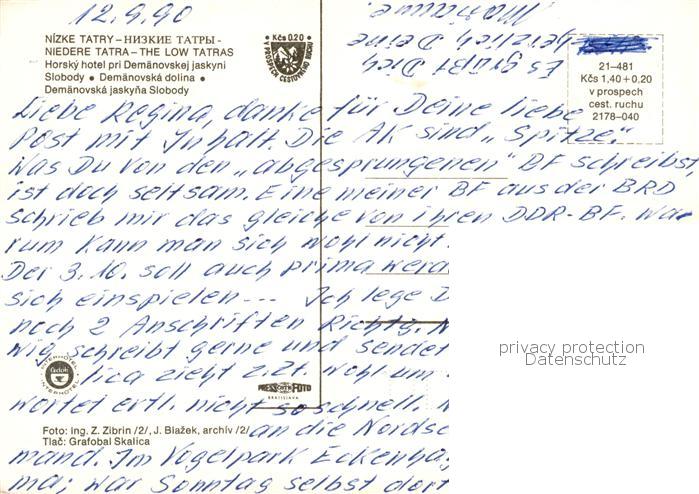 12.9.90
NÍZKE TATRY – НИЗКИЕ ТАТРЫ -
NIEDERE TATRA – THE LOW TATRAS
Horský hotel pri Demänovskej jaskyni
Slobody • Demänovská dolina •
Demänovská jaskyňa Slobody
Kčs 0.20
V PROSPECH CESTOVNÉHO RUCHU
21–481
Kčs 1,40+0,20
v prospech
cest. ruchu
2178–040
Liebe Regina, danke für Deine liebe
Post mit Inhalt. Die AK sind „Spitze".
Was Du von den „abgesprungenen" BF schreibst,
ist doch seltsam. Eine meiner BF aus der BRD
schrieb mir das gleiche von ihren DDR-BF. Wa-
rum kann man sich wohl nicht
Der 3.10. soll auch prima
sich einspielen... Ich lege
noch 2 Anschriften
schreibt gerne und sendet
zieht z.Zt. wohl um
wortet ertl. nicht so schnell.
an die
mand. Im Vogelpark
ma; war Sonntag selbst dort
Es grüßt Dich
herzlich Deine
INTERHOTEL
Čedok
INTERHOTEL
PRESSFOTO
BRATISLAVA
Foto: Ing. Z. Zibrin /2/, J. Blažek, archív /2/
Tlač: Grafobal Skalica
privacy protection
Datenschutz